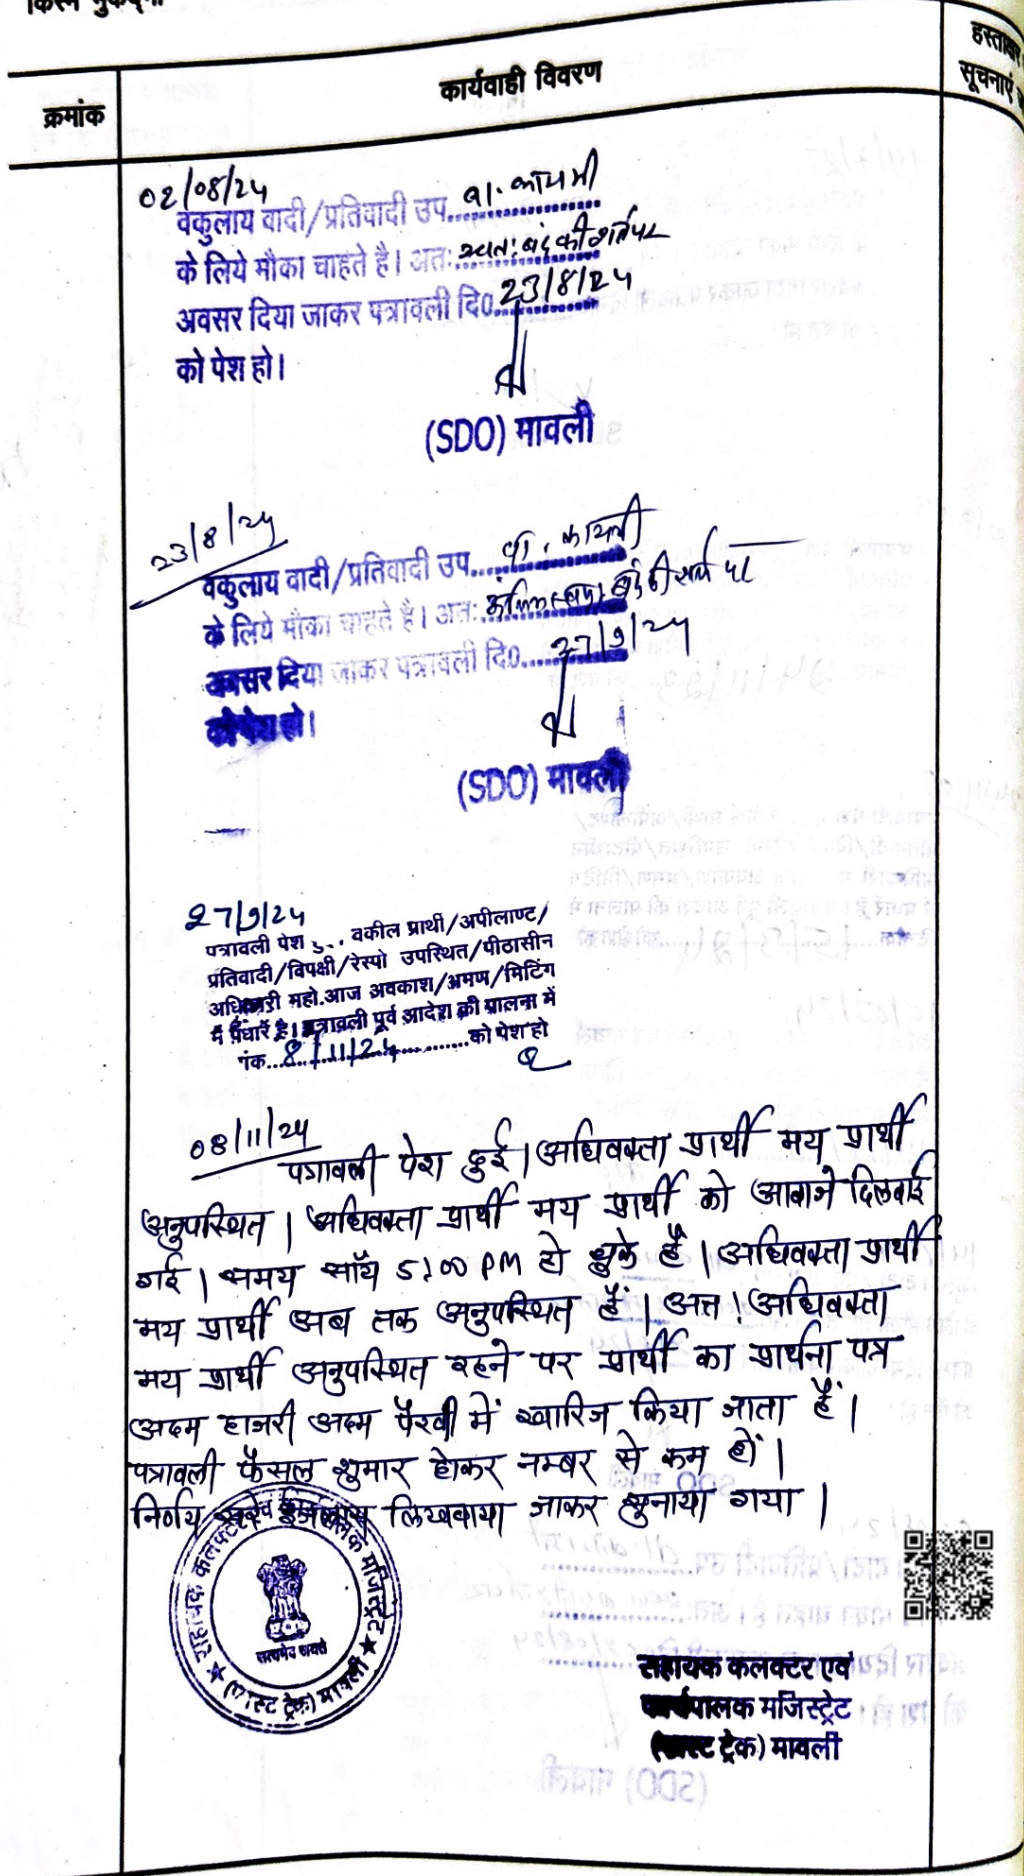 किस्म मुकदमा
क्रमांक
कार्यवाही विवरण
हस्ताक्षर
सूचनाएं
02/08/24
वकुलाय वादी/प्रतिवादी उप.. वा. कायमी
के लिये मौका चाहते है। अतः स्वतः बंद की शर्त पर
अवसर दिया जाकर पत्रावली दि0. 23/8/24
को पेश हो।
(SDO) मावली
23/8/24
वकुलाय वादी/प्रतिवादी उप.. वा. कायमी
के लिये मौका चाहते है। अतः बंद की शर्त पर
अवसर दिया जाकर पत्रावली दि0.. 27/9/24
को पेश हो।
(SDO) मावली
27/9/24
पत्रावली पेश हु... वकील प्रार्थी/अपीलाण्ट/
प्रतिवादी/विपक्षी/रेस्पो उपस्थित/पीठासीन
अधिकारी महो.आज अवकाश/भ्रमण/मिटिंग
में पधारें है। पत्रावली पूर्व आदेश की पालना में
नांक...8/11/24..........को पेश हो
08/11/24
पत्रावली पेश हुई। अधिवक्ता प्रार्थी मय प्रार्थी
अनुपस्थित। अधिवक्ता प्रार्थी मय प्रार्थी को आवाजे दिलवाई
गई। समय साँय 5:00 PM हो चुके है। अधिवक्ता प्रार्थी
मय प्रार्थी अब तक अनुपस्थित हैं। अत। अधिवक्ता
मय प्रार्थी अनुपस्थित रहने पर प्रार्थी का प्रार्थना पत्र
अदम हाजरी अदम पैरवी में खारिज किया जाता हैं।
पत्रावली फैसल शुमार होकर नम्बर से कम हों।
निर्णय सरे इजलास लिखवाया जाकर सुनाया गया।
सहायक कलक्टर एवं कार्यपालक मजिस्ट्रेट
सत्यमेव जयते
★ (फास्ट ट्रेक) मावली ★
सहायक कलक्टर एवं
कार्यपालक मजिस्ट्रेट
(फास्ट ट्रेक) मावली